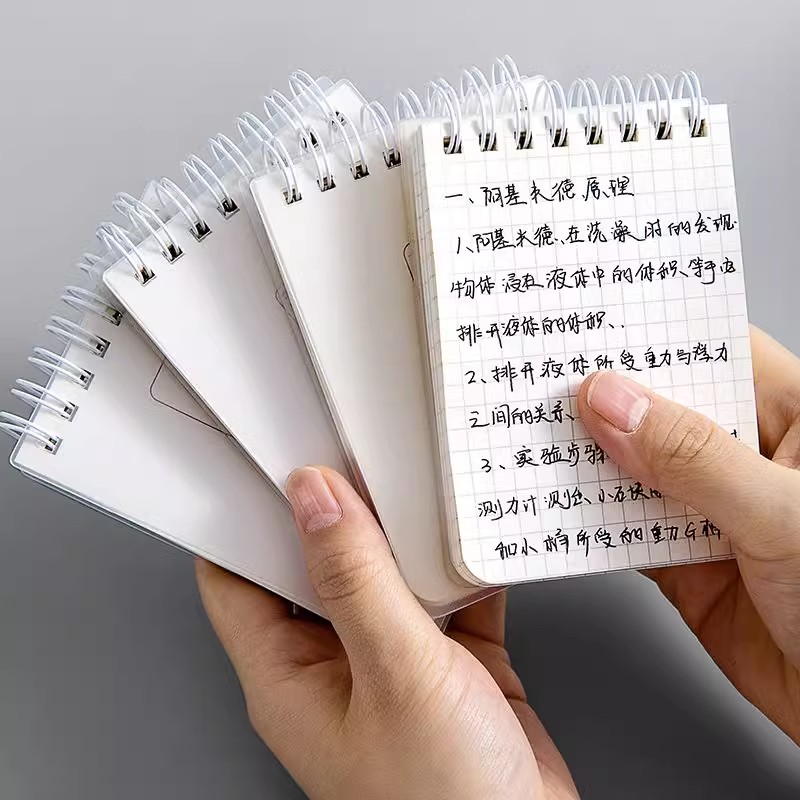 一、阿基米德原理
1、阿基米德、在洗澡时的发现.
物体浸在液体中的体积、等于
排开液体的体积、.
2、排开液体所受重力与浮力
之间的关系、
3、实验步
测力计测出、小石块
和小桶所受的重力G